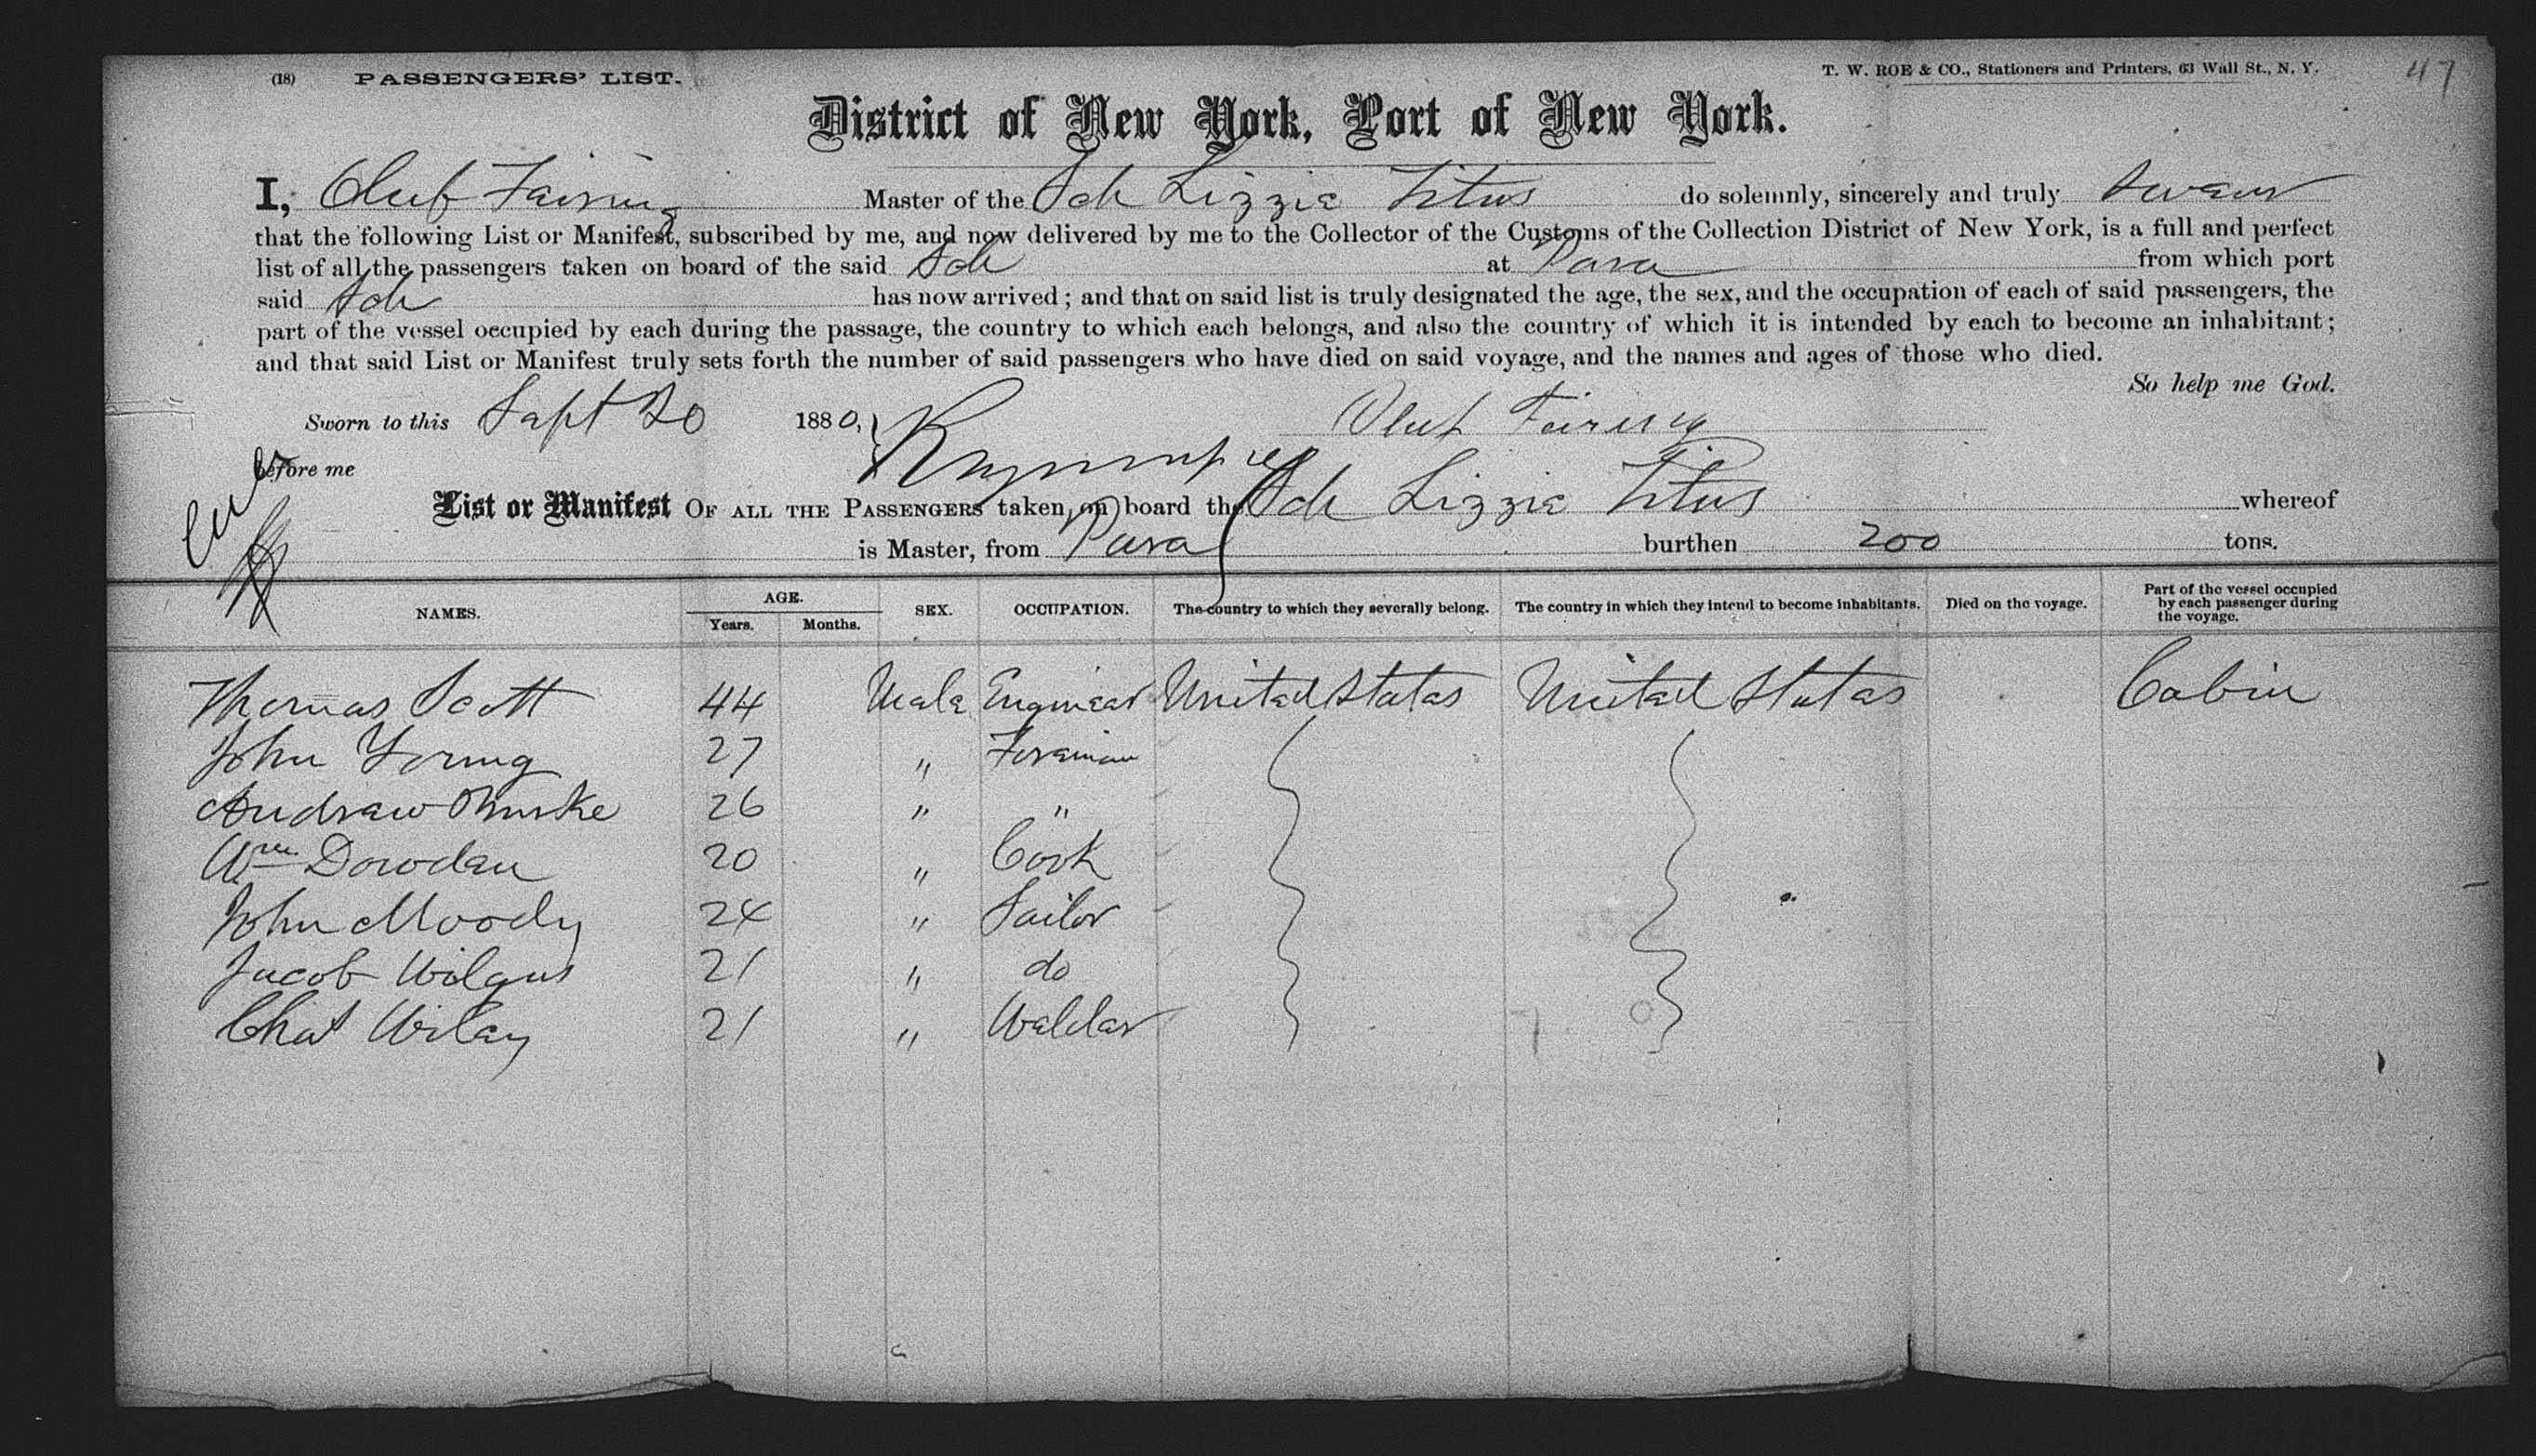 (18) PASSENGERS' LIST. T. W. ROE & CO., Stationers and Printers, 63 Wall St., N. Y. 47
District of New York, Port of New York.
I, Oluf Fairing Master of the Sch Lizzie Titus do solemnly, sincerely and truly swear
that the following List or Manifest, subscribed by me, and now delivered by me to the Collector of the Customs of the Collection District of New York, is a full and perfect
list of all the passengers taken on board of the said Sch at Para from which port
said Sch has now arrived; and that on said list is truly designated the age, the sex, and the occupation of each of said passengers, the
part of the vessel occupied by each during the passage, the country to which each belongs, and also the country of which it is intended by each to become an inhabitant;
and that said List or Manifest truly sets forth the number of said passengers who have died on said voyage, and the names and ages of those who died.
So help me God.
Sworn to this Sept 20 1880, Oluf
before me
List or Manifest OF ALL THE PASSENGERS taken on board the Sch Lizzie Titus whereof
is Master, from Para burthen 200 tons.
NAMES. AGE. Years. Months. SEX. OCCUPATION. The country to which they severally belong. The country in which they intend to become inhabitants. Died on the voyage. Part of the vessel occupied by each passenger during the voyage.
Thomas Scott 44 Male Engineer United States United States Cabin
John Young 27 " Foreman
Andrew 26 " "
Wm Dowden 20 " Cook
John Moody 24 " Sailor
Jacob Wilgus 21 " do
Chas Wiley 21 " Welder